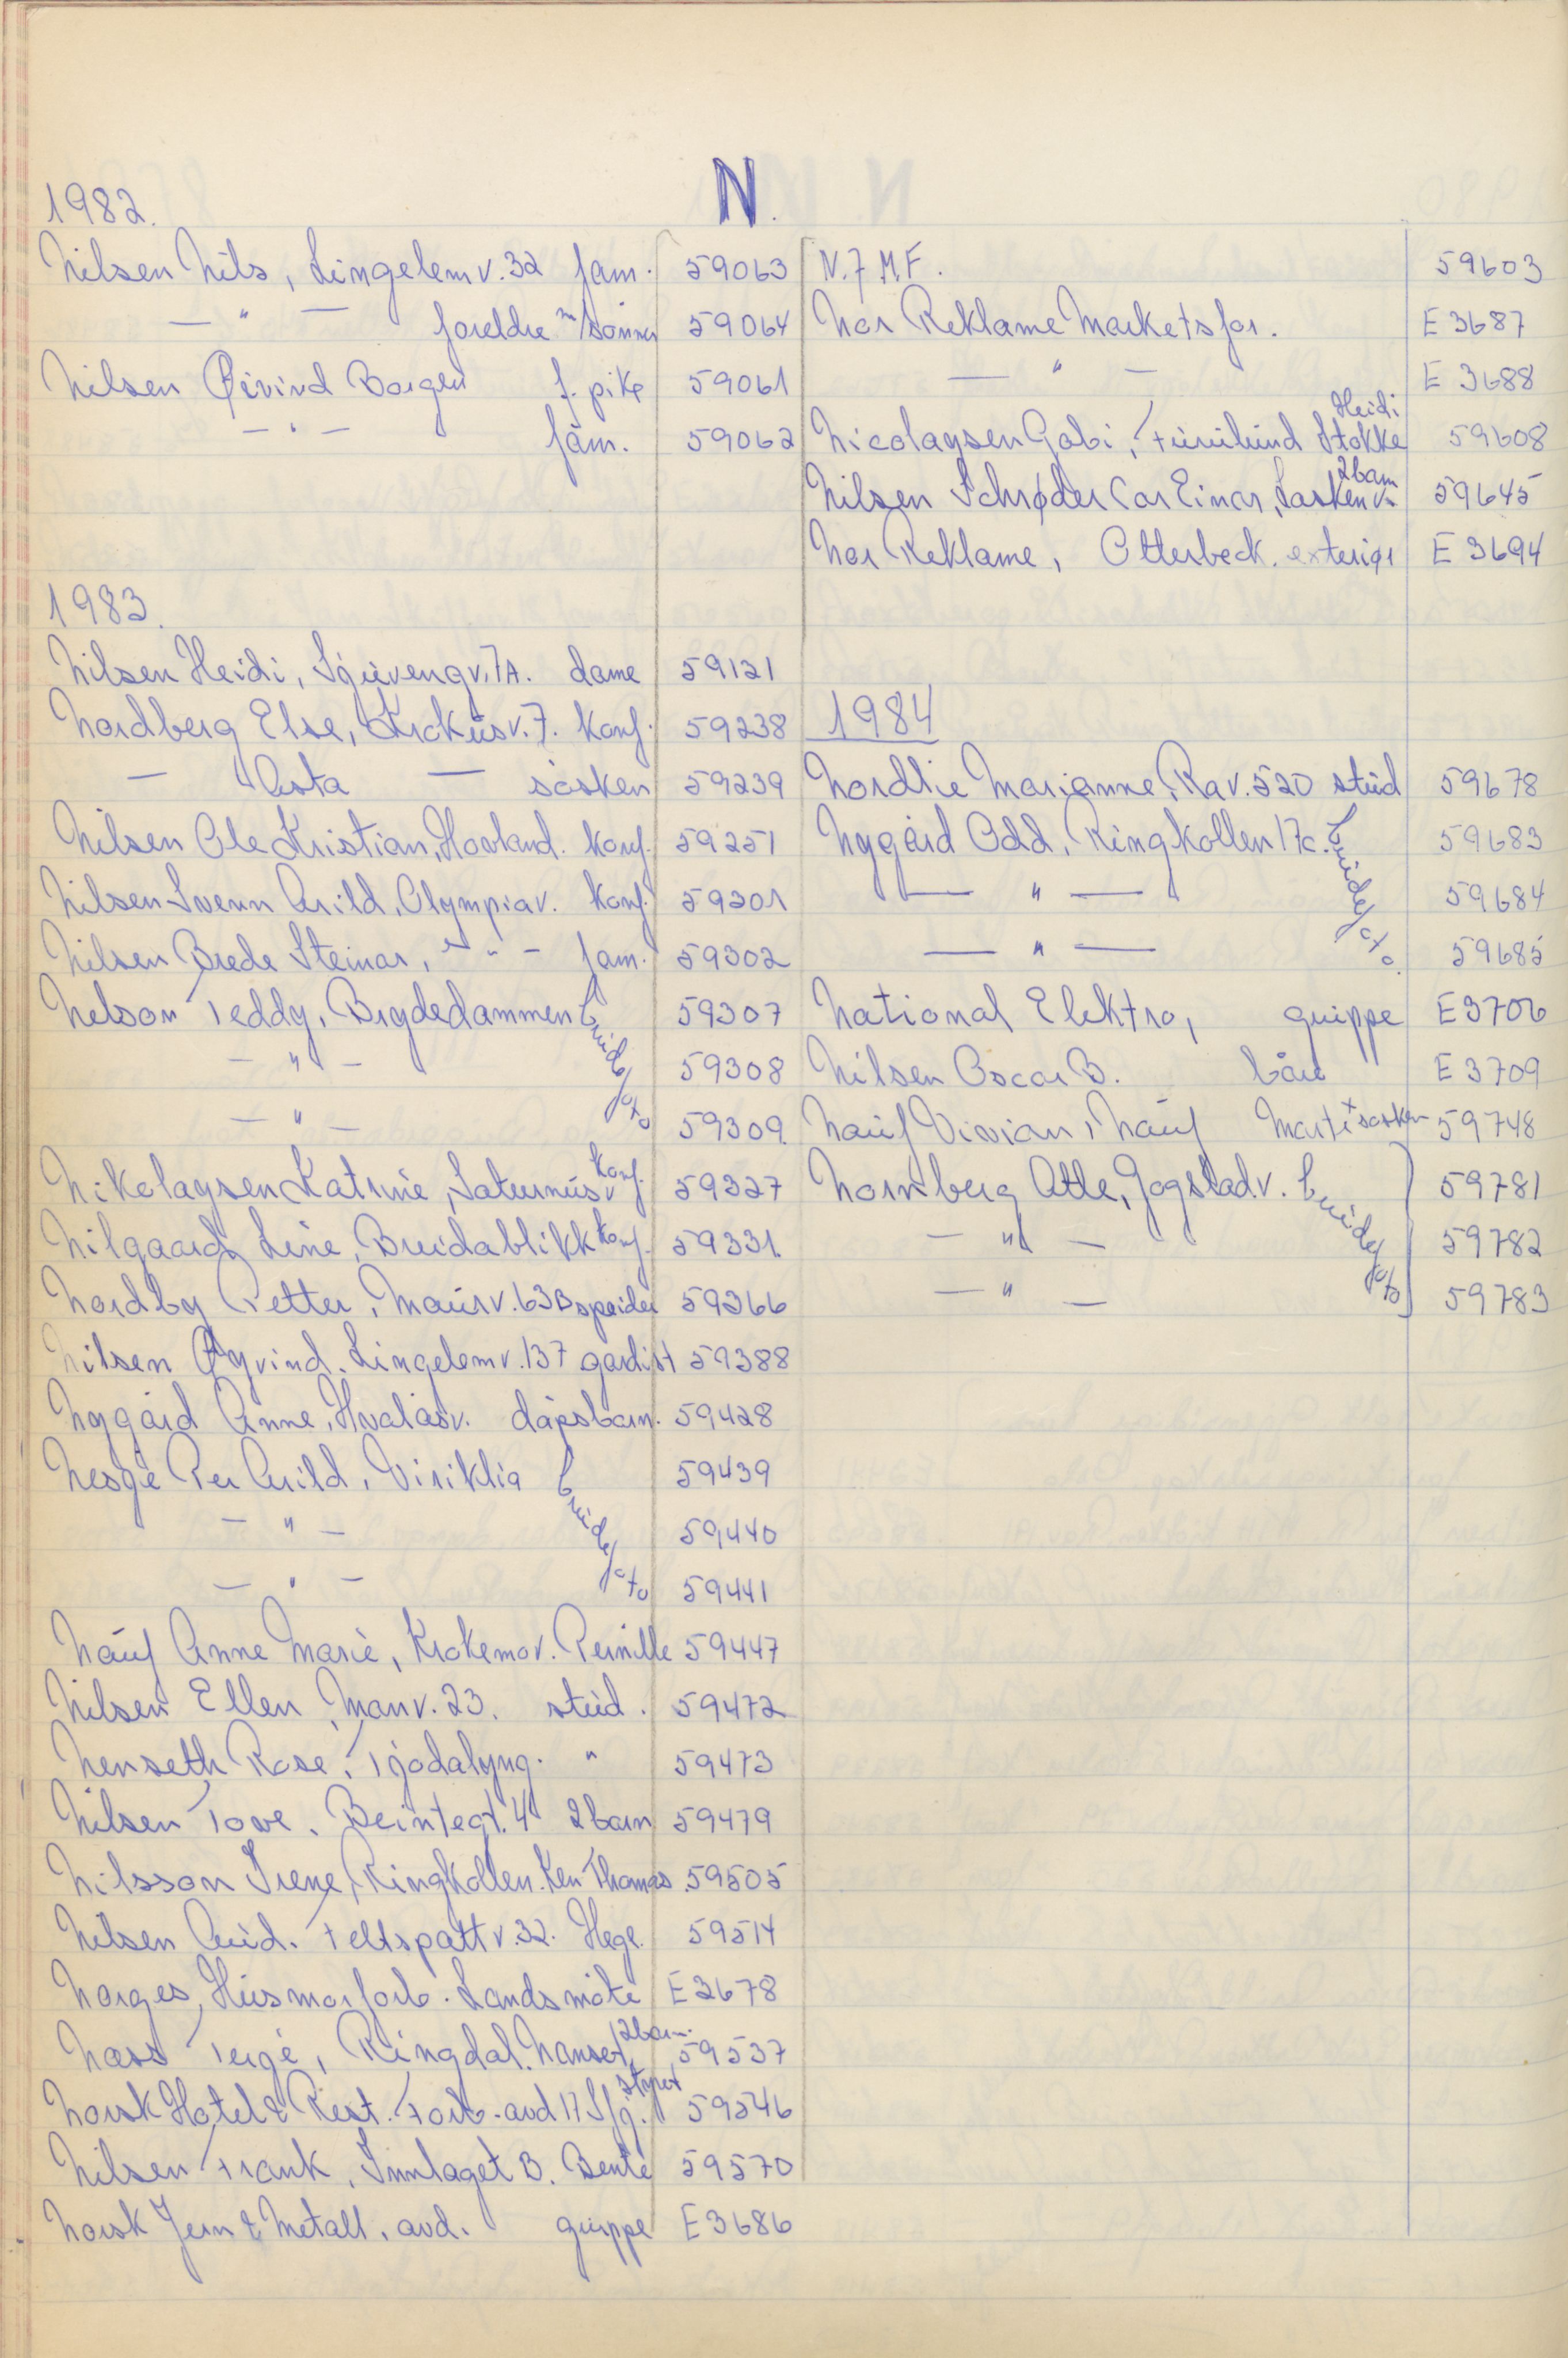 N.
1982.
Nilsen Nils, Lingelemv. 32 fam. 59063
— " — foreldre m/sönner 59064
Nilsen Øivind Borgen f. pike 59061
— " — fam. 59062
1983.
Nilsen Heidi, Sjuvengv. 7A. dame 59121
Nordberg Else, Krokusv. 7. konf. 59238
— Asta — søsken 59239
Nilsen Ole Kristian, Hovland. konf. 59251
Nilsen Svenn Arild, Olympiav. konf. 59301
Nilsen Brede Steinar, — " — fam. 59302
Nelson Teddy, Brydedammen brudefoto 59307
— " — 59308
— " — 59309
Nikolaysen Katrine, Saturnusv. konf. 59327
Nilgaard Line, Breidablikk konf. 59331
Nordby Petter, Maurv. 63B speider 59366
Nilsen Øyvind. Lingelemv. 137 gardist 59388
Nygård Anne, Hvalåsv. dåpsbarn. 59428
Nesge Per Arild, Viriklia brudefoto 59439
— " — 59440
— " — 59441
Nauf Anne Marie, Krokemov. Pernille 59447
Nilsen Ellen, Manv. 23. stud. 59472
Nenseth Rose, Tjodalyng. " 59473
Nilsen Tove. Beintegt. 4 2 barn 59479
Nilsson Irene, Ringkollen. Ken Thomas 59505
Nilsen Aud. Feltspattv. 32. Hege. 59514
Norges Husmorforb. Landsmöte E3678
Næss Terje, Ringdal. Nanset, 2 barn. 59537
Norsk Hotel & Rest. Forb. avd 17 S/fj. styret 59546
Nilsen Frank, Innlaget B. Bente 59570
Norsk Jern & Metall. avd. gruppe E3686
N. 7 M.F. 59603
Nor Reklame Marketsfor. E3687
— " — E3688
Nicolaysen Gabi, Furulund Stokke Heidi 59608
Nilsen Schrøder Car Einar, Laskenv. 2 barn 59645
Nor Reklame, Otterbeck. exteriør E3694
1984
Nordlie Marianne, Rav. 520 stud 59678
Nygård Odd, Ringkollen 17c. brudefoto. 59683
— " — 59684
— " — 59685
National Elektro, gruppe E3706
Nilsen Oscar B. båre E3709
Nauf Vivian, Nauf Marti + søsken 59748
Nornberg Atle, Gogstadv. brudefoto 59781
— " — 59782
— " — 59783